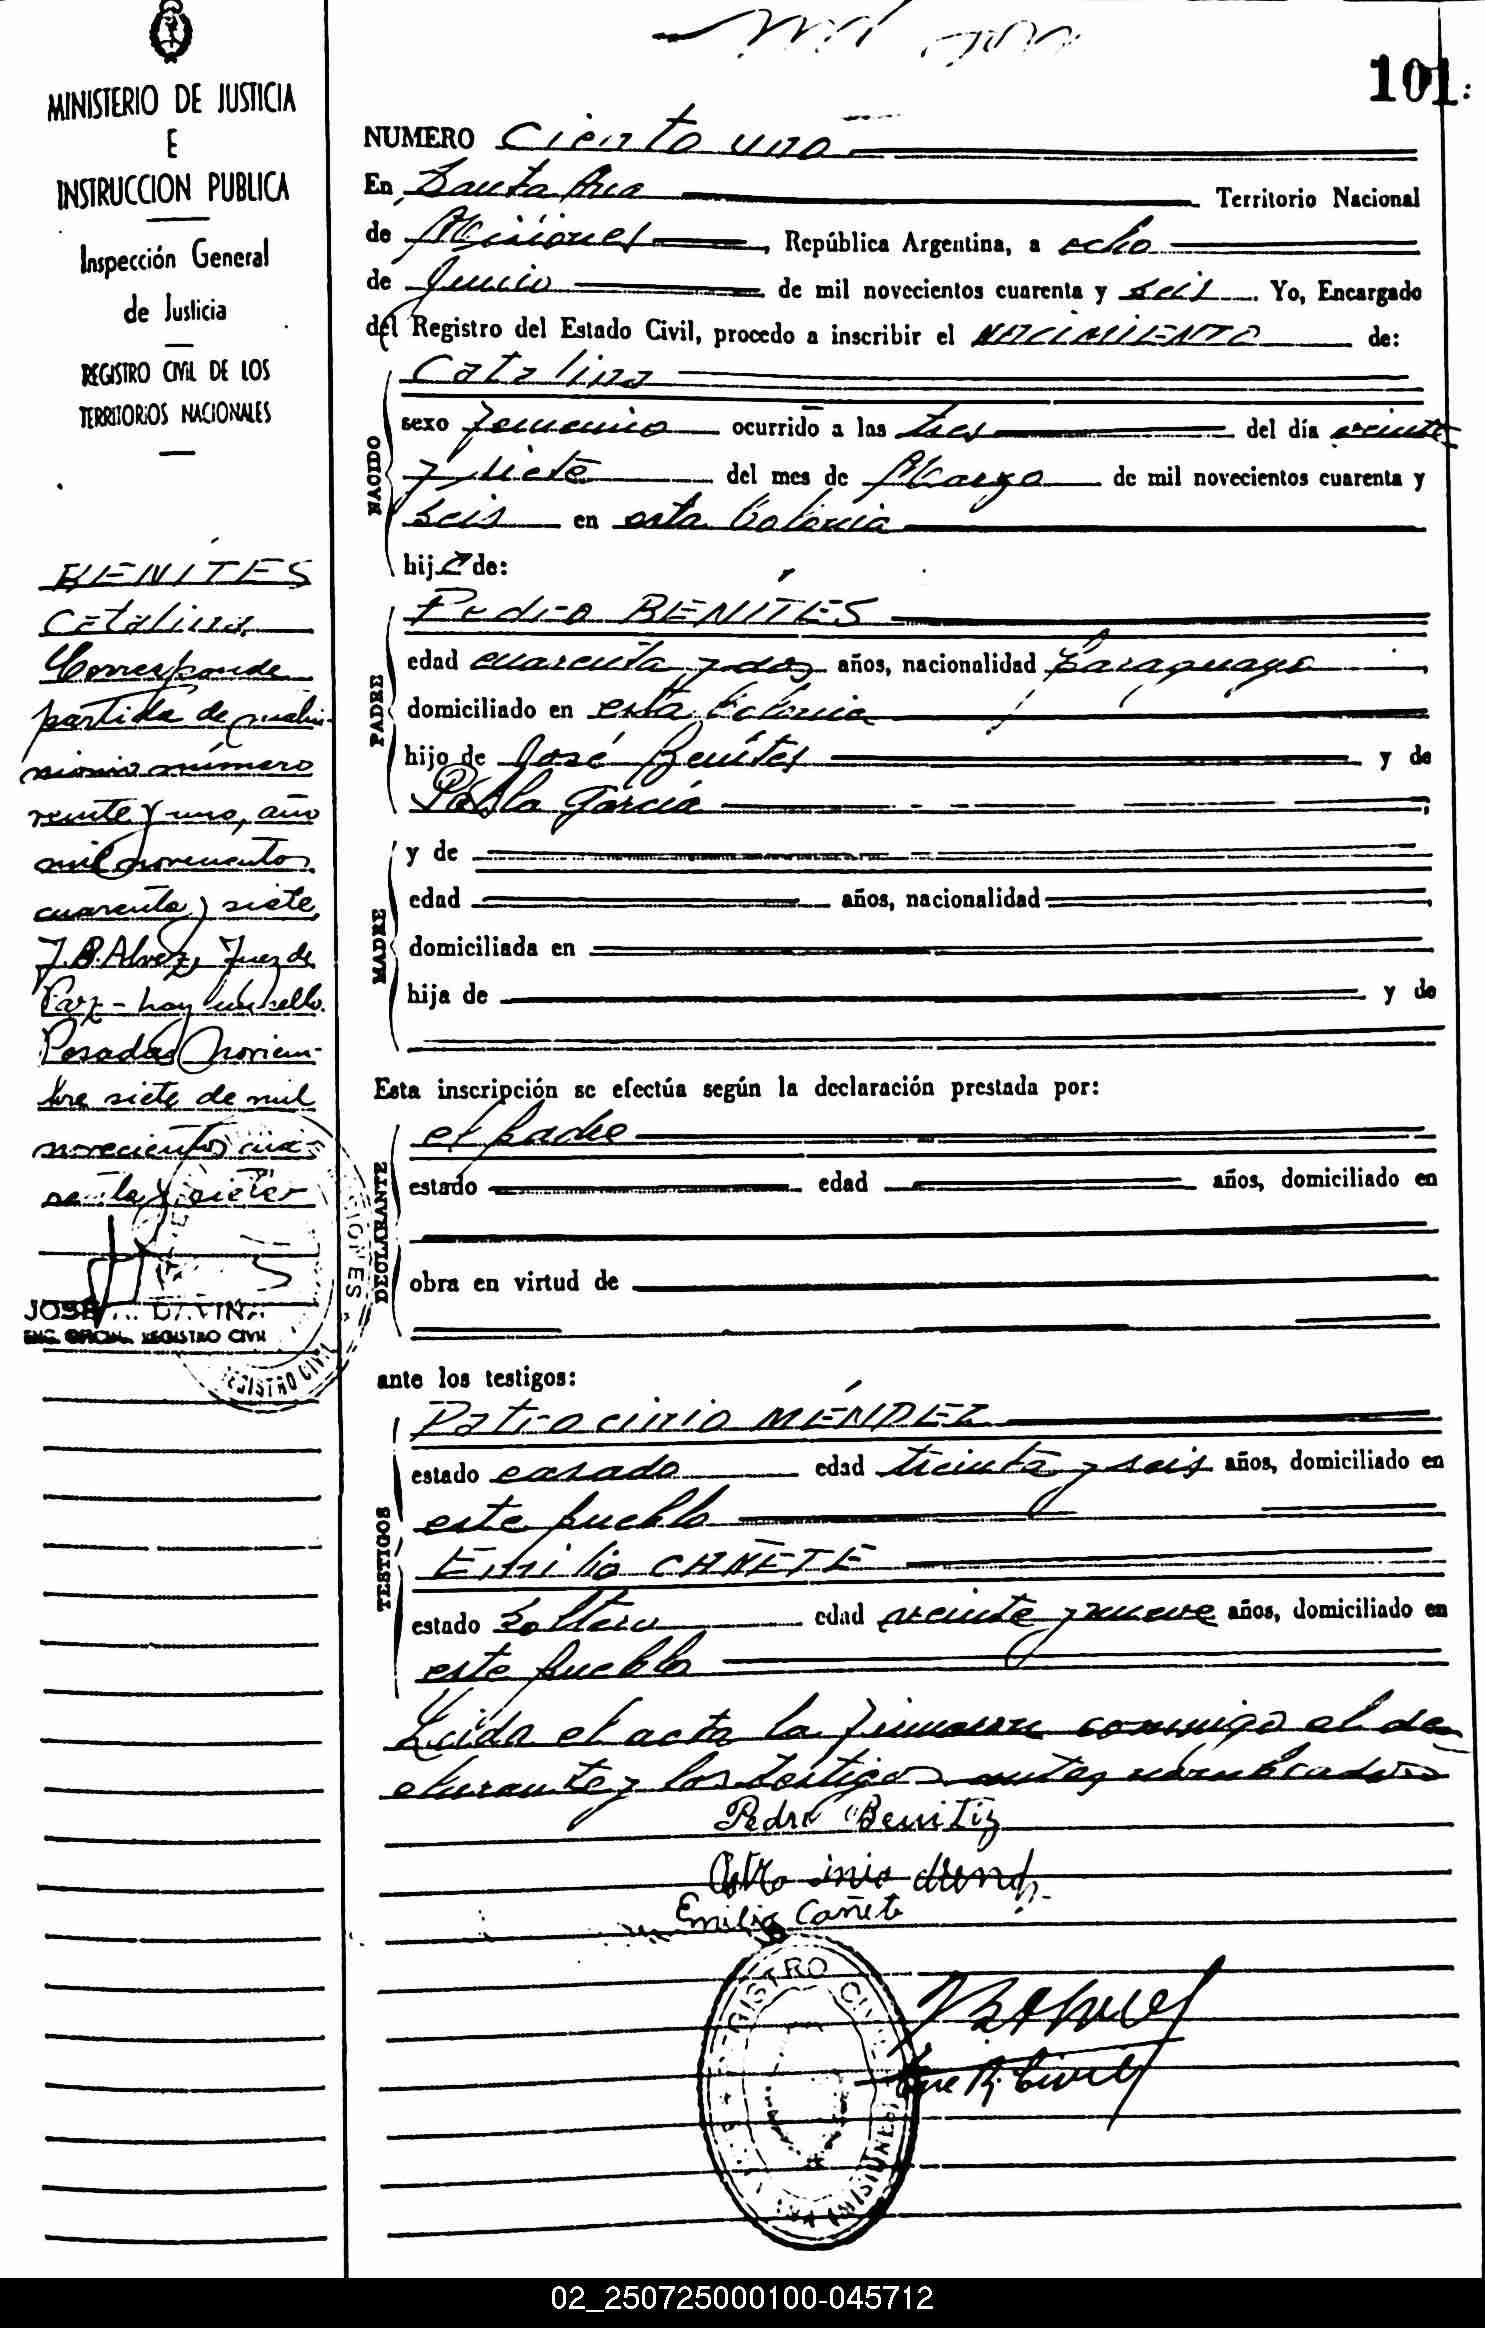 101
MINISTERIO DE JUSTICIA
E
INSTRUCCION PUBLICA
Inspección General
de Justicia
REGISTRO CIVIL DE LOS
TERRITORIOS NACIONALES
BENÍTES
Catalina
Corresponde
partida de matri-
monio número
veinte y uno, año
mil novecientos
cuarenta y siete,
J.B. Alvez, Juez de
Paz - hay un sello.
Posadas, noviem-
bre siete de mil
novecientos cua-
renta y siete
JOSE
ENC. OFICIAL REGISTRO CIVIL
REGISTRO CIVIL MISIONES
NUMERO Ciento uno
En Santa Ana Territorio Nacional
de Misiones, República Argentina, a ocho
de Junio de mil novecientos cuarenta y seis. Yo, Encargado
del Registro del Estado Civil, procedo a inscribir el NACIMIENTO de:
Catalina
NACIDO
sexo femenino ocurrido a las tres del día veinte
y siete del mes de Marzo de mil novecientos cuarenta y
seis en esta Colonia
hija de:
PADRE
Pedro BENÍTES
edad cuarenta y dos años, nacionalidad Paraguaya
domiciliado en esta Colonia
hijo de José Benítes y de
Pabla García
MADRE
y de
edad años, nacionalidad
domiciliada en
hija de y de
Esta inscripción se efectúa según la declaración prestada por:
DECLARANTE
el padre
estado edad años, domiciliado en
obra en virtud de
ante los testigos:
TESTIGOS
Patrocinio MÉNDEZ
estado casado edad treinta y seis años, domiciliado en
este pueblo
Emilio CAÑETE
estado Soltero edad veinte y nueve años, domiciliado en
este pueblo
Leida el acta la firmaron conmigo el de
clarante y los testigos antes nombrados
Pedro Benitiz
Emilio Cañete
REGISTRO CIVIL MISIONES
02_250725000100-045712